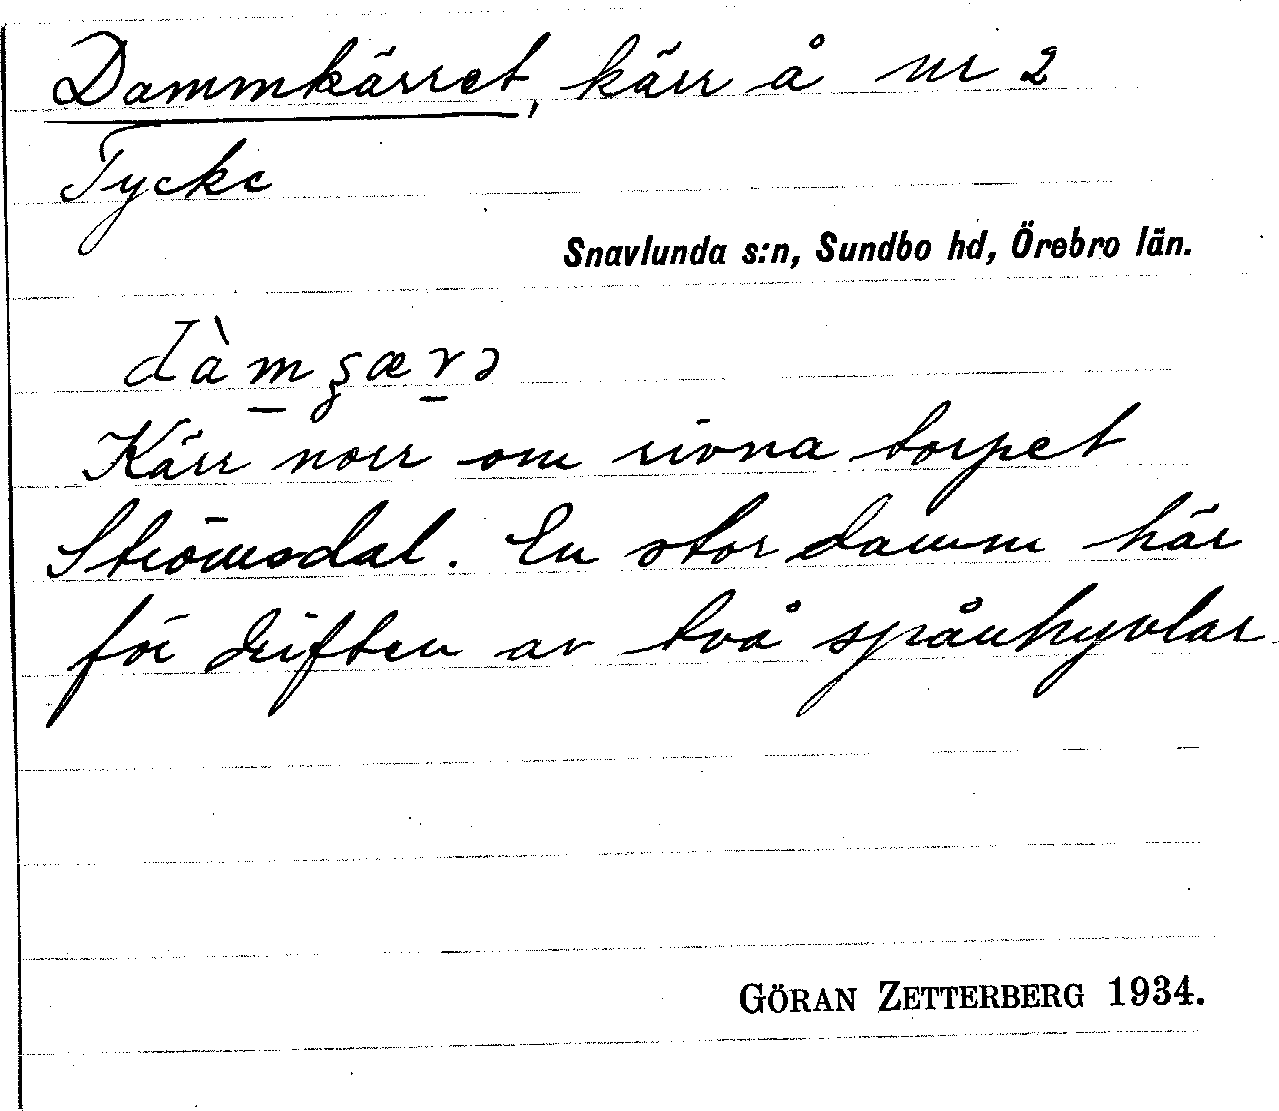 Dammkärret, kärr å nr 2
Tycke
Snavlunda s:n, Sundbo hd, Örebro län.
dàm̲ʂær̲ɔ
Kärr norr om rivna torpet
Strömsdal. En stor damm här
för driften av två spånhyvlar
GÖRAN ZETTERBERG 1934.